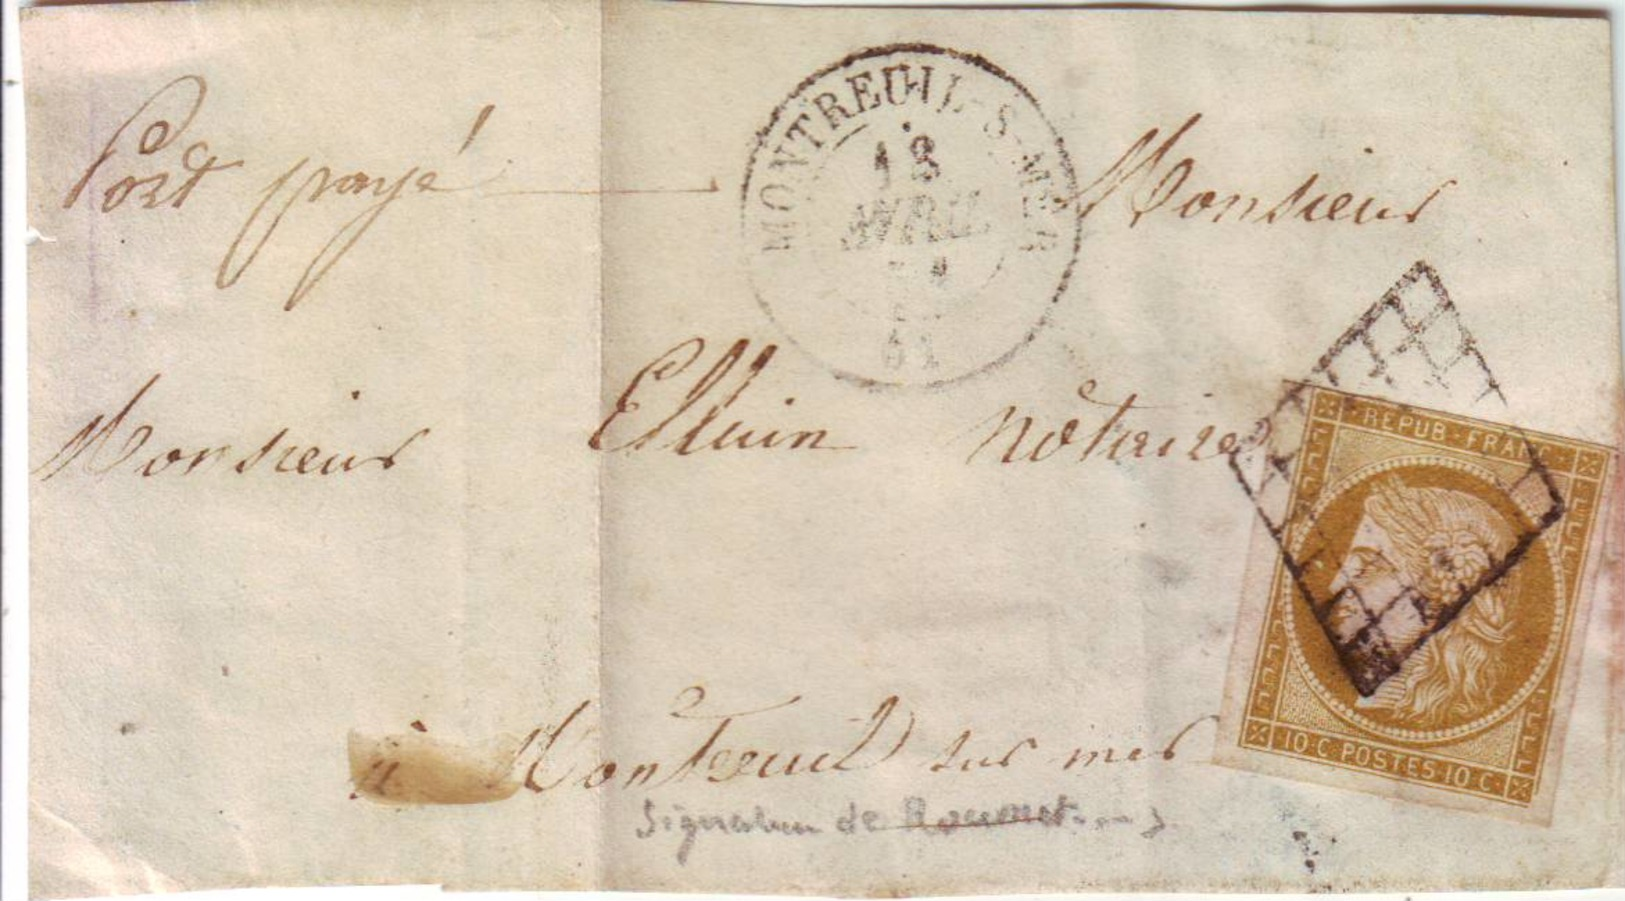 Port payé
MONTREUIL-S-MER
13
AVRIL
51
Monsieur
Monsieur Elluin nôtaire
à Montreuil sur mer
REPUB·FRANC·
10·C·POSTES·10·C·
de